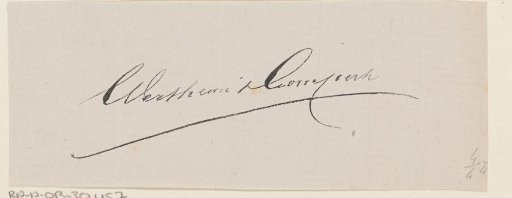 Wertheim & Gompertz
RP-P-OB-30.457